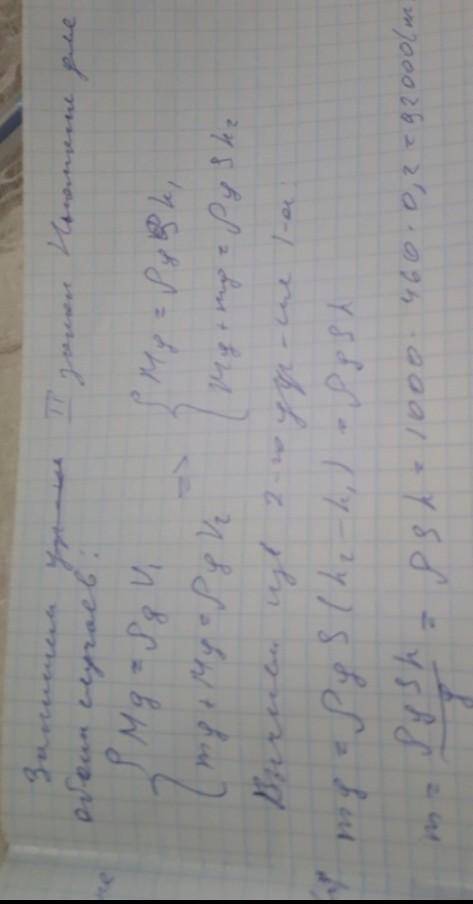 Запишем II закон Ньютона для
обоих случаев:
{ Mg = ρgV₁ { Mg = ρgSh₁
=>
{ mg + Mg = ρgV₂ { Mg + mg = ρgSh₂
Вычтем из 2-го ур-ия 1-ое.
mg = ρgS(h₂ - h₁) = ρgSh
m = ρgSh/g = ρSh = 1000 · 460 · 0,2 = 92000(m